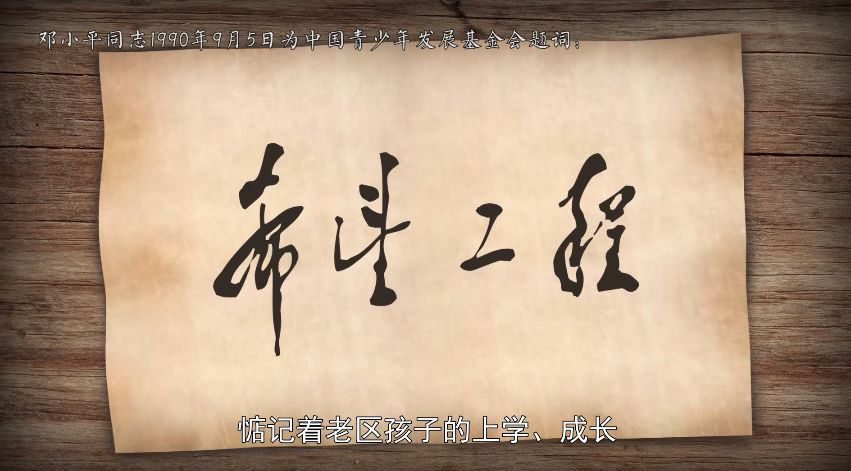 邓小平同志1990年9月5日为中国青少年发展基金会题词：
希望工程
惦记着老区孩子的上学、成长